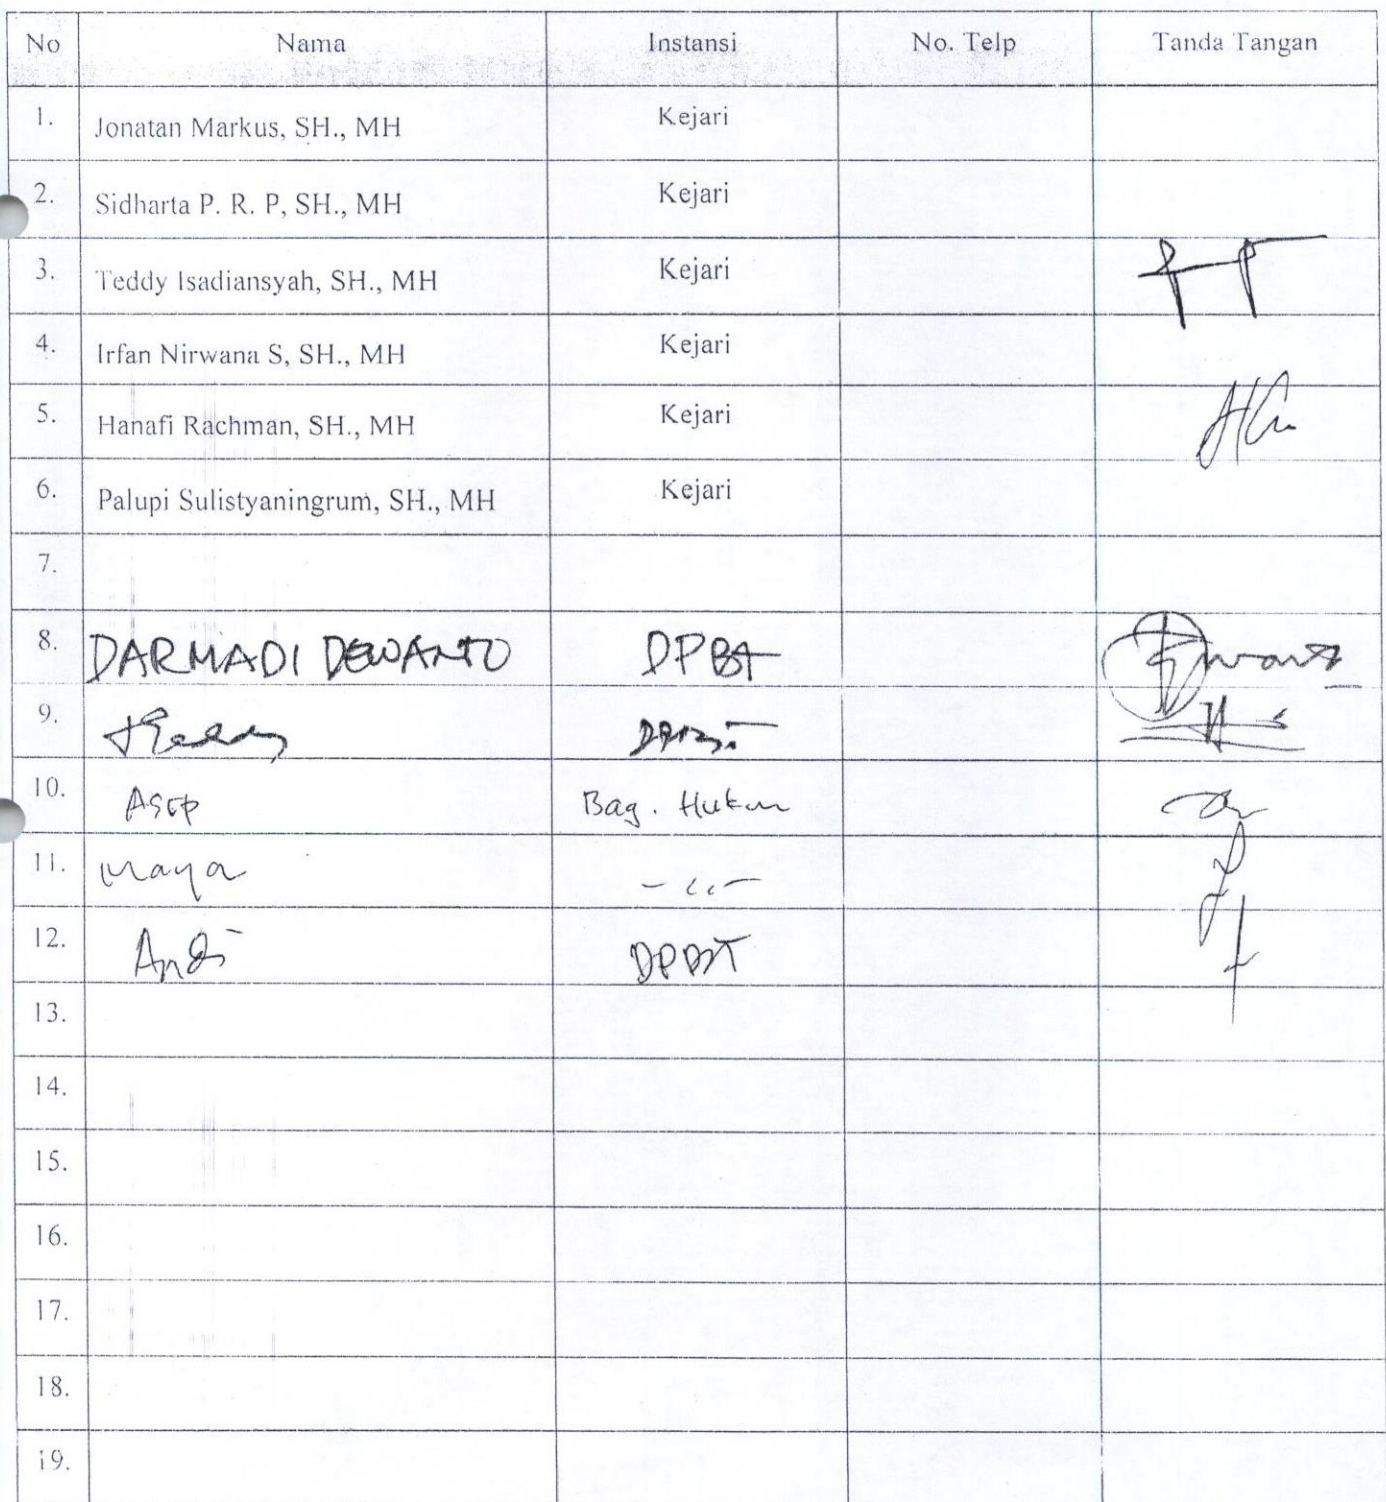 No Nama Instansi No. Telp Tanda Tangan
1. Jonatan Markus, SH., MH Kejari
2. Sidharta P. R. P, SH., MH Kejari
3. Teddy Isadiansyah, SH., MH Kejari
4. Irfan Nirwana S, SH., MH Kejari
5. Hanafi Rachman, SH., MH Kejari
6. Palupi Sulistyaningrum, SH., MH Kejari
7.
8. DARMADI DEWANTO DPBT
9.
10. Asep Bag. Hukum
11. Maya - ,, -
12. Andi DPBT
13.
14.
15.
16.
17.
18.
19.